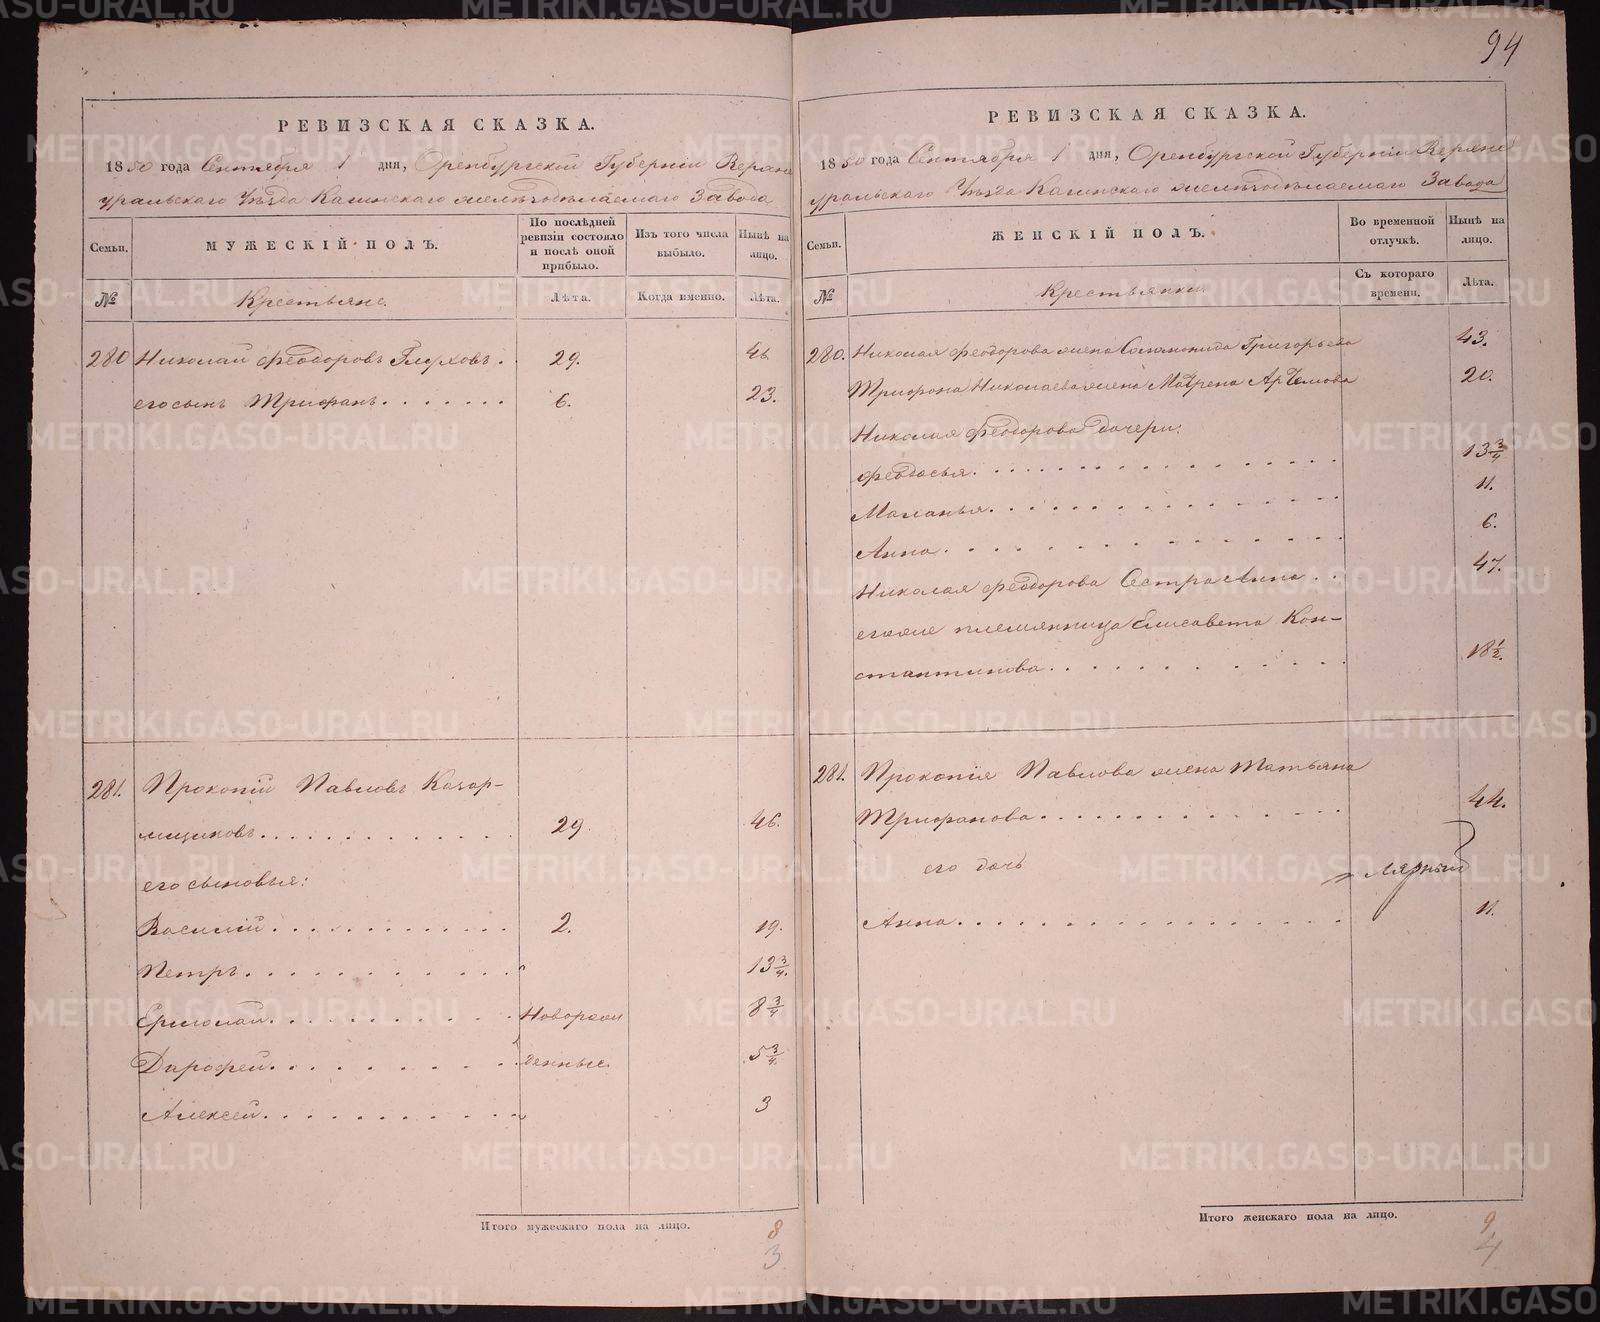 94
РЕВИЗСКАЯ СКАЗКА.
1850 года Сентября 1 дня, Оренбургской Губерніи Верхне
уральскаго Уѣзда Кагинскаго желѣзодѣлаемаго Завода
Семьи.
МУЖЕСКІЙ ПОЛЪ.
По послѣдней ревизіи состояло и послѣ оной прибыло.
Изъ того числа выбыло.
Нынѣ на лицо.
№
Крестьяне.
Лѣта.
Когда именно.
Лѣта.
280 Николай Феодоровъ Глуховъ. 29. 46.
его сынъ Трифанъ. 6. 23.
281. Прокопій Павловъ Казар-
мщиковъ. 29. 46.
его сыновья:
Василій. 2. 19.
Петръ. 13 3/4.
Ермолай. Новорож 8 3/4
Дарофей. денные. 5 3/4
Алексей. 3
Итого мужескаго пола на лицо.
8
3
РЕВИЗСКАЯ СКАЗКА.
1850 года Сентября 1 дня, Оренбургской Губерніи Верхне
уральскаго Уѣзда Кагинскаго желѣзодѣлаемаго Завода
Семьи.
ЖЕНСКІЙ ПОЛЪ.
Во временной отлучкѣ.
Нынѣ на лицо.
№
Крестьянки.
Съ котораго времени.
Лѣта.
280. Николая Феодорова жена Соломонида Григорьева 43.
Трифона Николаева жена Матрена Артемова 20.
Николая Феодорова дочери:
Феодосья. 13 3/4
Маланья. 11.
Анна. 6.
Николая Феодорова Сестра Анна. 47.
егоже племянница Елисавета Кон-
стантинова. 18 1/2.
281. Прокопія Павлова жена Татьяна
Трифанова. 44.
его дочь
Анна. 11.
Итого женскаго пола на лицо.
9
4
METRIKI.GASO-URAL.RU